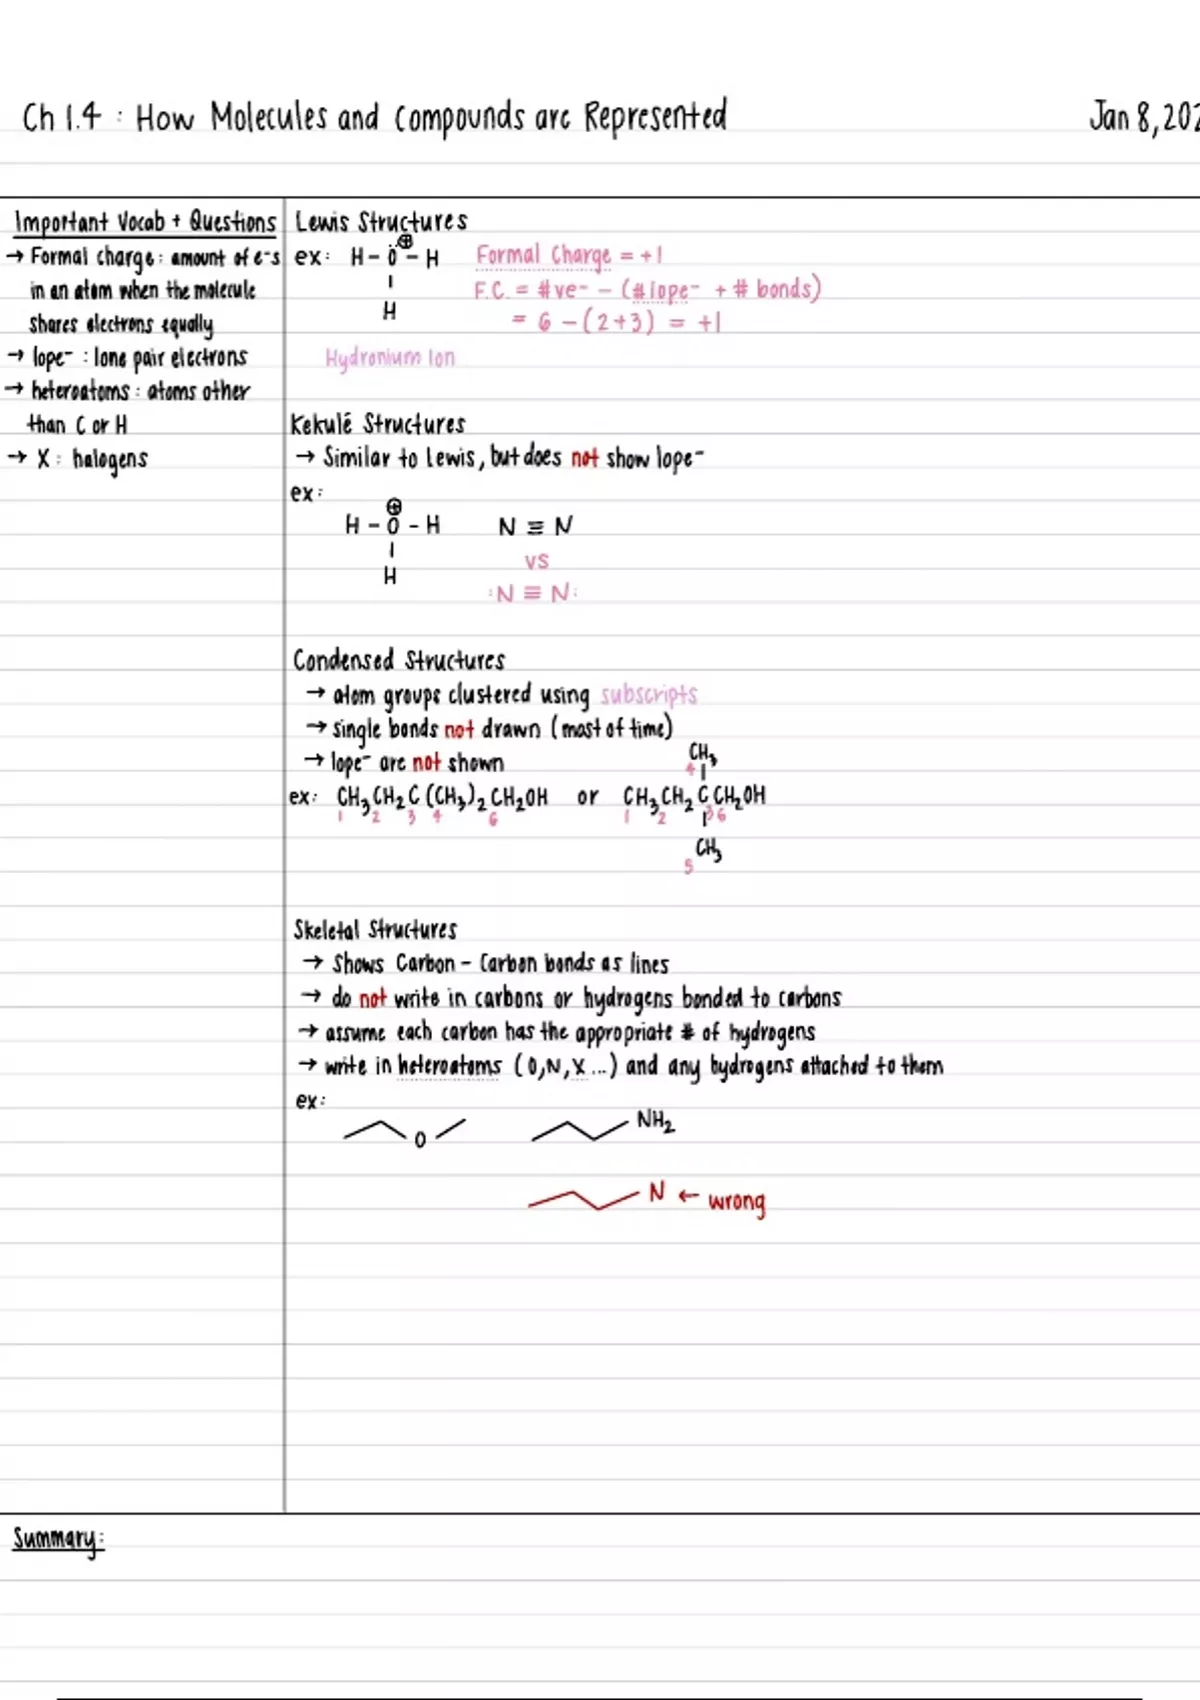 Ch 1.4 : How Molecules and Compounds are Represented
Jan 8, 202
Important Vocab + Questions
→ Formal charge: amount of e-s
in an atom when the molecule
shares electrons equally
→ lope⁻ : lone pair electrons
→ heteroatoms: atoms other
than C or H
→ X: halogens
Lewis Structures
ex: H - Ö⊕ - H
H
Formal Charge = +1
F.C. = #ve⁻ - (#lope⁻ + # bonds)
= 6 - (2+3) = +1
Hydronium Ion
Kekulē Structures
→ Similar to Lewis, but does not show lope⁻
ex:
⊕
H - O - H N ≡ N
H
vs
:N ≡ N:
Condensed Structures
→ atom groups clustered using subscripts
→ single bonds not drawn (most of time)
→ lope⁻ are not shown
CH₃
4
ex: CH₃CH₂C(CH₃)₂CH₂OH or CH₃CH₂CCH₂OH
1 2 3 4 6 1 2 3 6
CH₃
5
Skeletal Structures
→ Shows Carbon - Carbon bonds as lines
→ do not write in carbons or hydrogens bonded to carbons
→ assume each carbon has the appropriate # of hydrogens
→ write in heteroatoms (O,N,X...) and any hydrogens attached to them
ex:
O NH₂
N ← wrong
Summary: